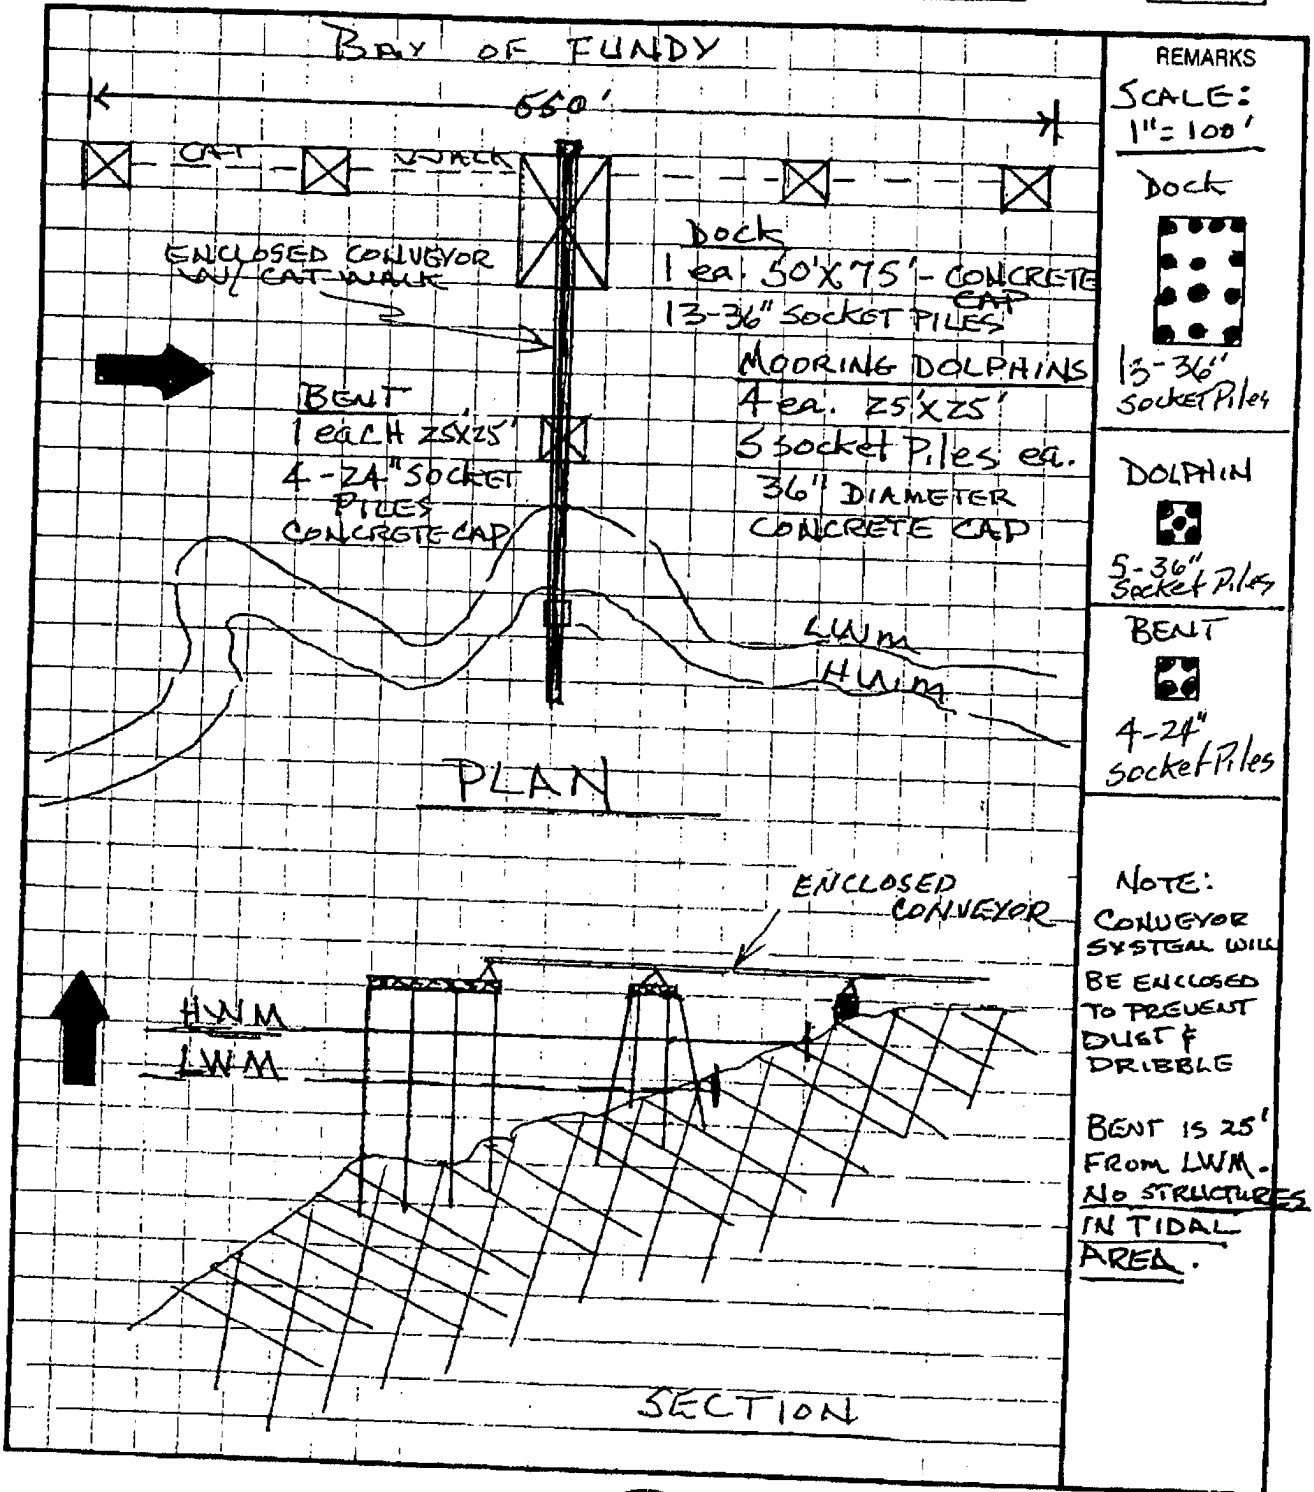 BAY OF FUNDY
550'
CAT WALK
ENCLOSED CONVEYOR
W/ CAT WALK
DOCK
1 ea. 50'X75' - CONCRETE
CAP
13-36" SOCKET PILES
MOORING DOLPHINS
4 ea. 25'X25'
5 Socket Piles ea.
36" DIAMETER
CONCRETE CAP
BENT
1 EACH 25'X25'
4-24" SOCKET
PILES
CONCRETE CAP
LWM
HWM
PLAN
ENCLOSED
CONVEYOR
HWM
LWM
SECTION
REMARKS
SCALE:
1" = 100'
DOCK
13-36"
Socket Piles
DOLPHIN
5-36"
Socket Piles
BENT
4-24"
Socket Piles
NOTE:
CONVEYOR
SYSTEM WILL
BE ENCLOSED
TO PREVENT
DUST &
DRIBBLE
BENT IS 25'
FROM LWM.
NO STRUCTURES
IN TIDAL
AREA.